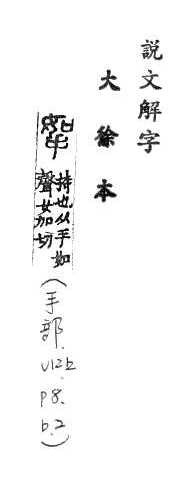 說文解字
大徐本
挐
持也从手如
聲女加切
(手部.
V12上
P8.
b.2)